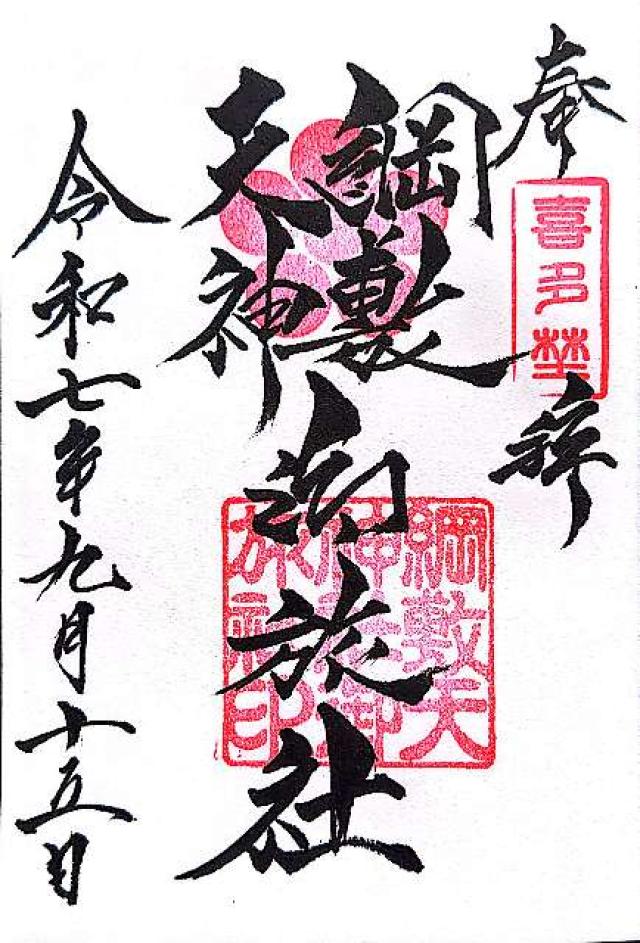 奉拝
喜多埜
綱敷
天神
御旅社
綱敷天
神社御
旅社印
令和七年九月十五日